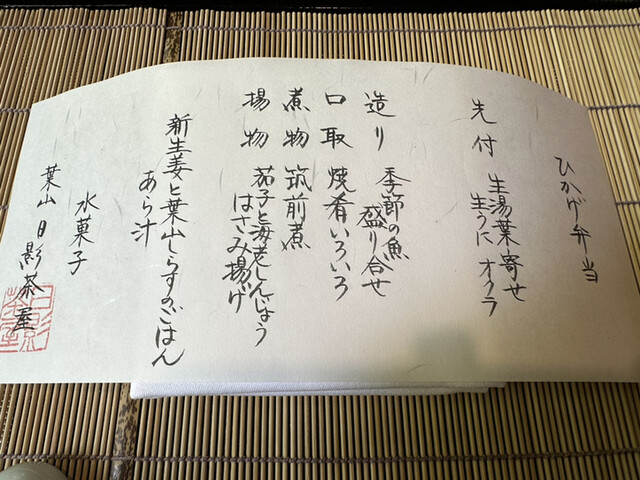 ひかげ弁当
先付 生湯葉寄せ
生うに オクラ
造り 季節の魚
盛り合せ
口取 焼肴いろいろ
煮物 筑前煮
揚物 茄子と海老しんじょう
はさみ揚げ
新生姜と葉山しらすのごはん
あら汁
水菓子
葉山 日影茶屋
日影茶屋